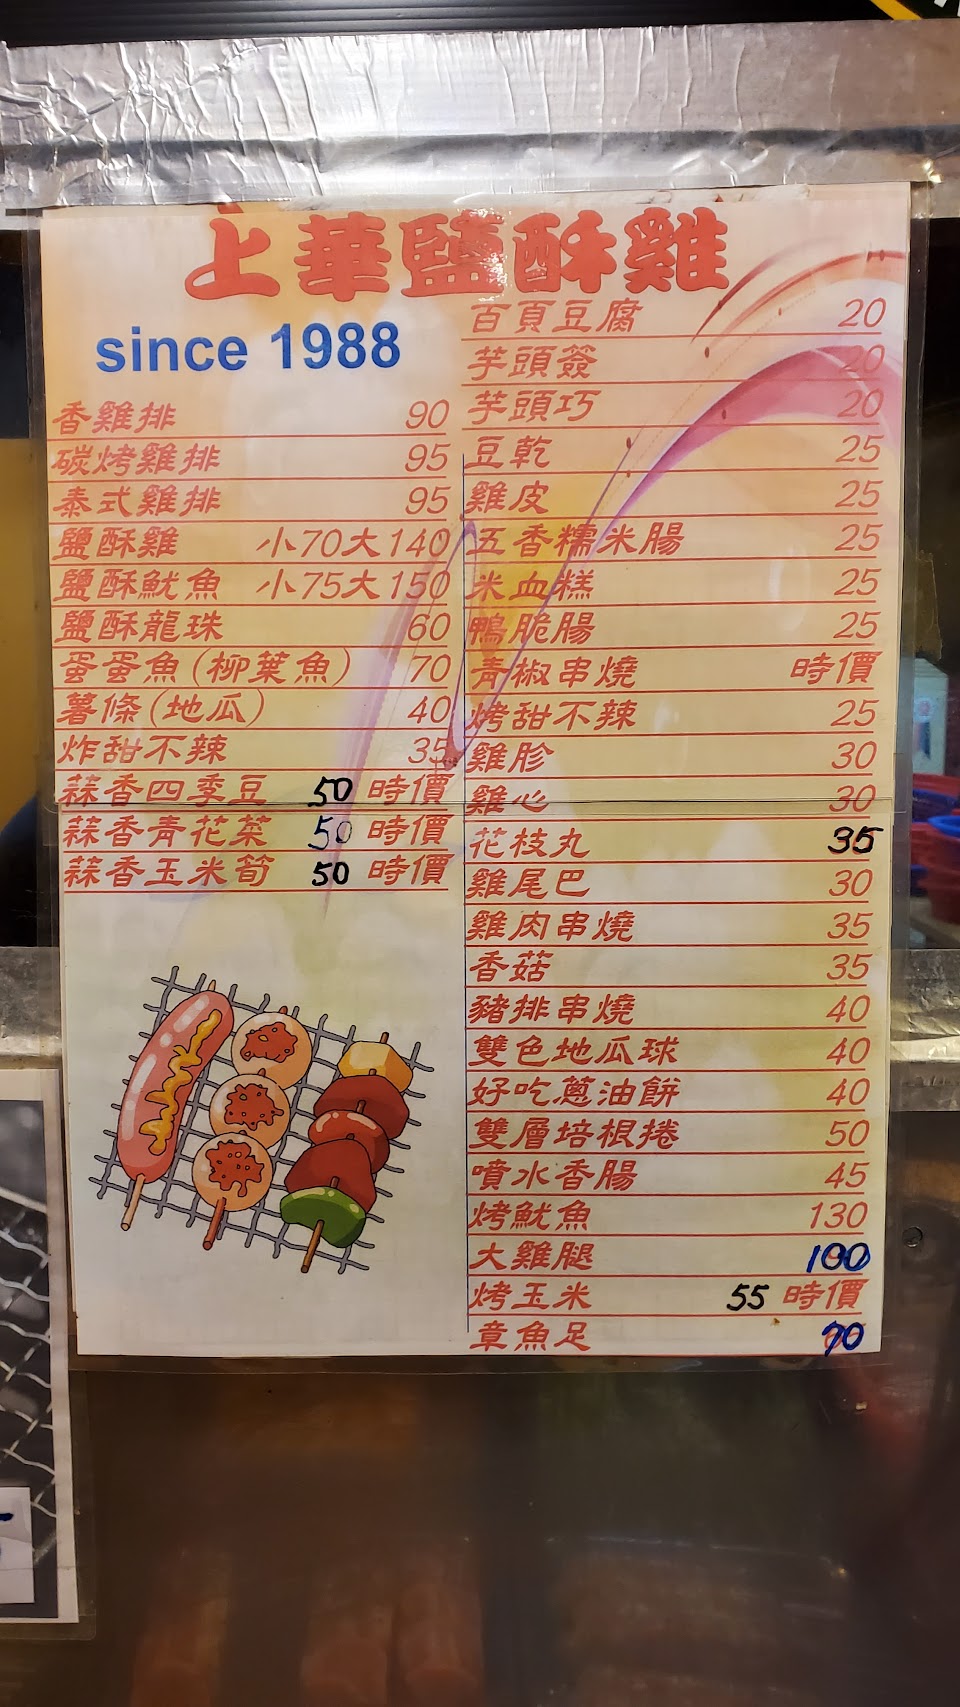 上華鹽酥雞
since 1988
香雞排 90
碳烤雞排 95
泰式雞排 95
鹽酥雞 小70大140
鹽酥魷魚 小75大150
鹽酥龍珠 60
蛋蛋魚(柳葉魚) 70
薯條(地瓜) 40
炸甜不辣 35
蒜香四季豆 50 時價
蒜香青花菜 50 時價
蒜香玉米筍 50 時價
百頁豆腐 20
芋頭簽 20
芋頭巧 20
豆乾 25
雞皮 25
五香糯米腸 25
米血糕 25
鴨脆腸 25
青椒串燒 時價
烤甜不辣 25
雞胗 30
雞心 30
花枝丸 35
雞尾巴 30
雞肉串燒 35
香菇 35
豬排串燒 40
雙色地瓜球 40
好吃蔥油餅 40
雙層培根捲 50
噴水香腸 45
烤魷魚 130
大雞腿 100
烤玉米 55 時價
章魚足 70